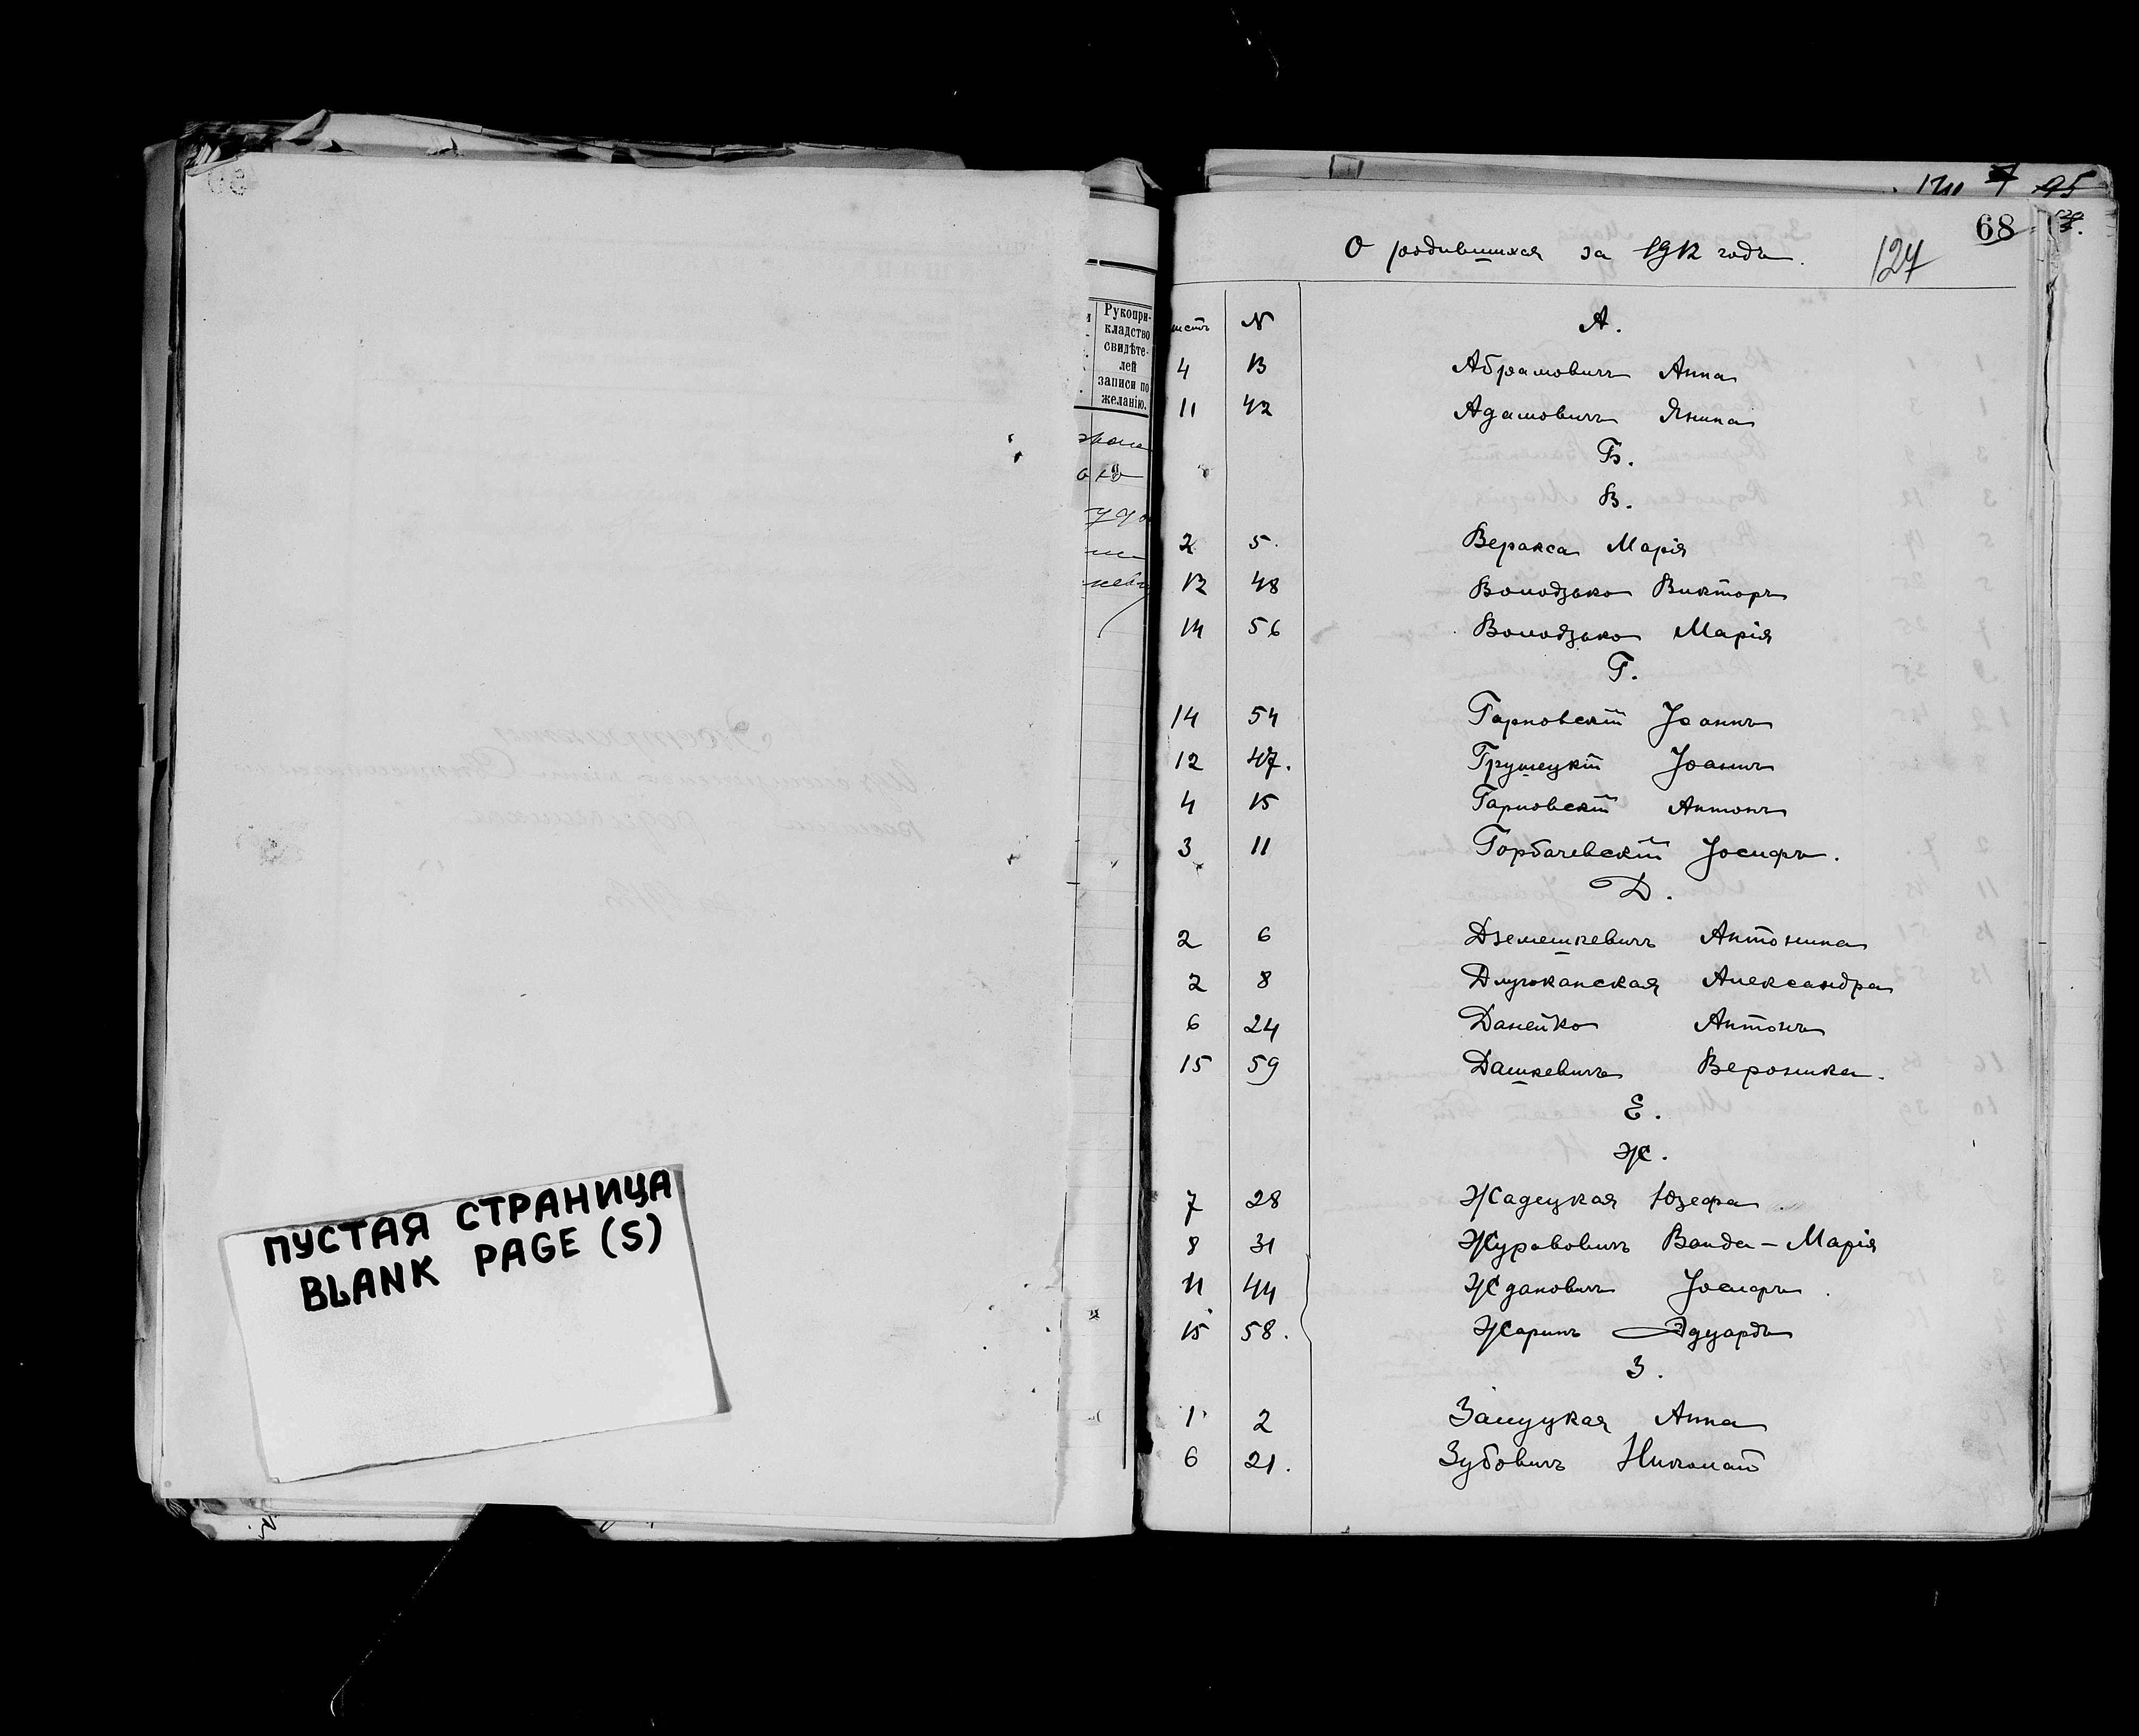 ПУСТАЯ СТРАНИЦА
BLANK PAGE (S)
Рукопри-
кладство
свидѣте-
лей
записи по
желанію.
68
127
О родившихся за 1912 годъ.
листъ N А.
4 13 Абрамовичъ Анна
11 42 Адамовичъ Янина
Б.
В.
2 5. Веракса Марія
12 48 Володзько Викторъ
14 56 Володзько Марія
Г.
14 54 Гарновскій Іоаннъ
12 47. Грушецкій Іоаннъ
4 15 Гарновскій Антонъ
3 11 Горбачевскій Іосифъ.
Д.
2 6 Дземешкевичъ Антонина
2 8 Длужканская Александра
6 24 Данейко Антонъ
15 59 Дашкевичъ Вероника.
Е.
Ж.
7 28 Жадецкая Юзефа
8 31 Журавовичъ Ванда - Марія
11 44 Ждановичъ Іосифъ.
15 58. Жаринъ Эдуардъ
З.
1 2 Залуцкая Анна
6 21. Зубовичъ Николай